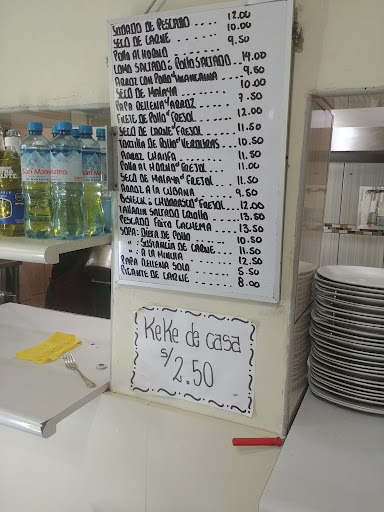 SUDADO DE PESCADO ..... 12.00
SECO DE CARNE ..... 10.00
POLLO AL HORNO ..... 9.50
LOMO SALTADO ó POLLO SALTADO .. 14.00
ARROZ CON POLLO "HUANCAINA ... 9.50
SECO DE MALAYA ..... 10.00
PAPA RELLENA "ARROZ ..... 7.50
FILETE DE POLLO "FREJOL ..... 12.00
SECO DE CARNE "FREJOL ..... 11.50
TORTILLA DE POLLO "VERDURAS ... 10.50
ARROZ CHAUFA ..... 11.50
POLLO AL HORNO "FREJOL ..... 11.50
SECO DE MALAYA "FREJOL ..... 11.50
ARROZ A LA CUBANA ..... 9.50
BISTECK ó CHURRASCO "FREJOL .... 12.00
TALLARIN SALTADO CRIOLLO ..... 13.50
PESCADO FRITO CACHEMA ..... 13.50
SOPA: DIETA DE POLLO ..... 10.50
" : SUSTANCIA DE CARNE .... 11.50
" : A LA MINUTA ..... 12.50
PAPA RELLENA SOLA ..... 5.50
PICANTE DE CARNE ..... 8.00
KeKe de casa
S/ 2.50
San Mateo